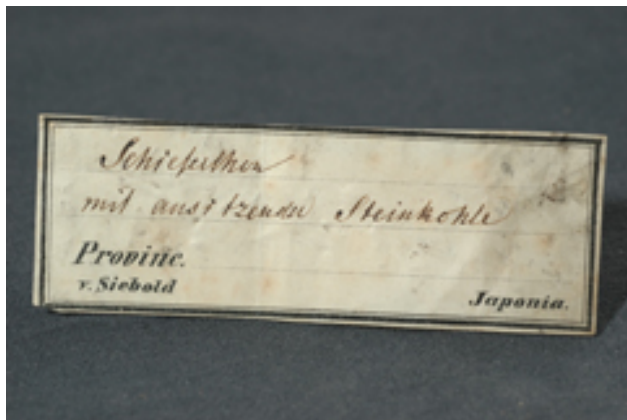 Schieferthon
mit ansitzender Steinkohle
Provinc.
v. Siebold
Japonia.